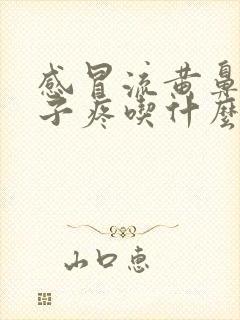 感冒流黄鼻
子疼喫什麼
山口惠